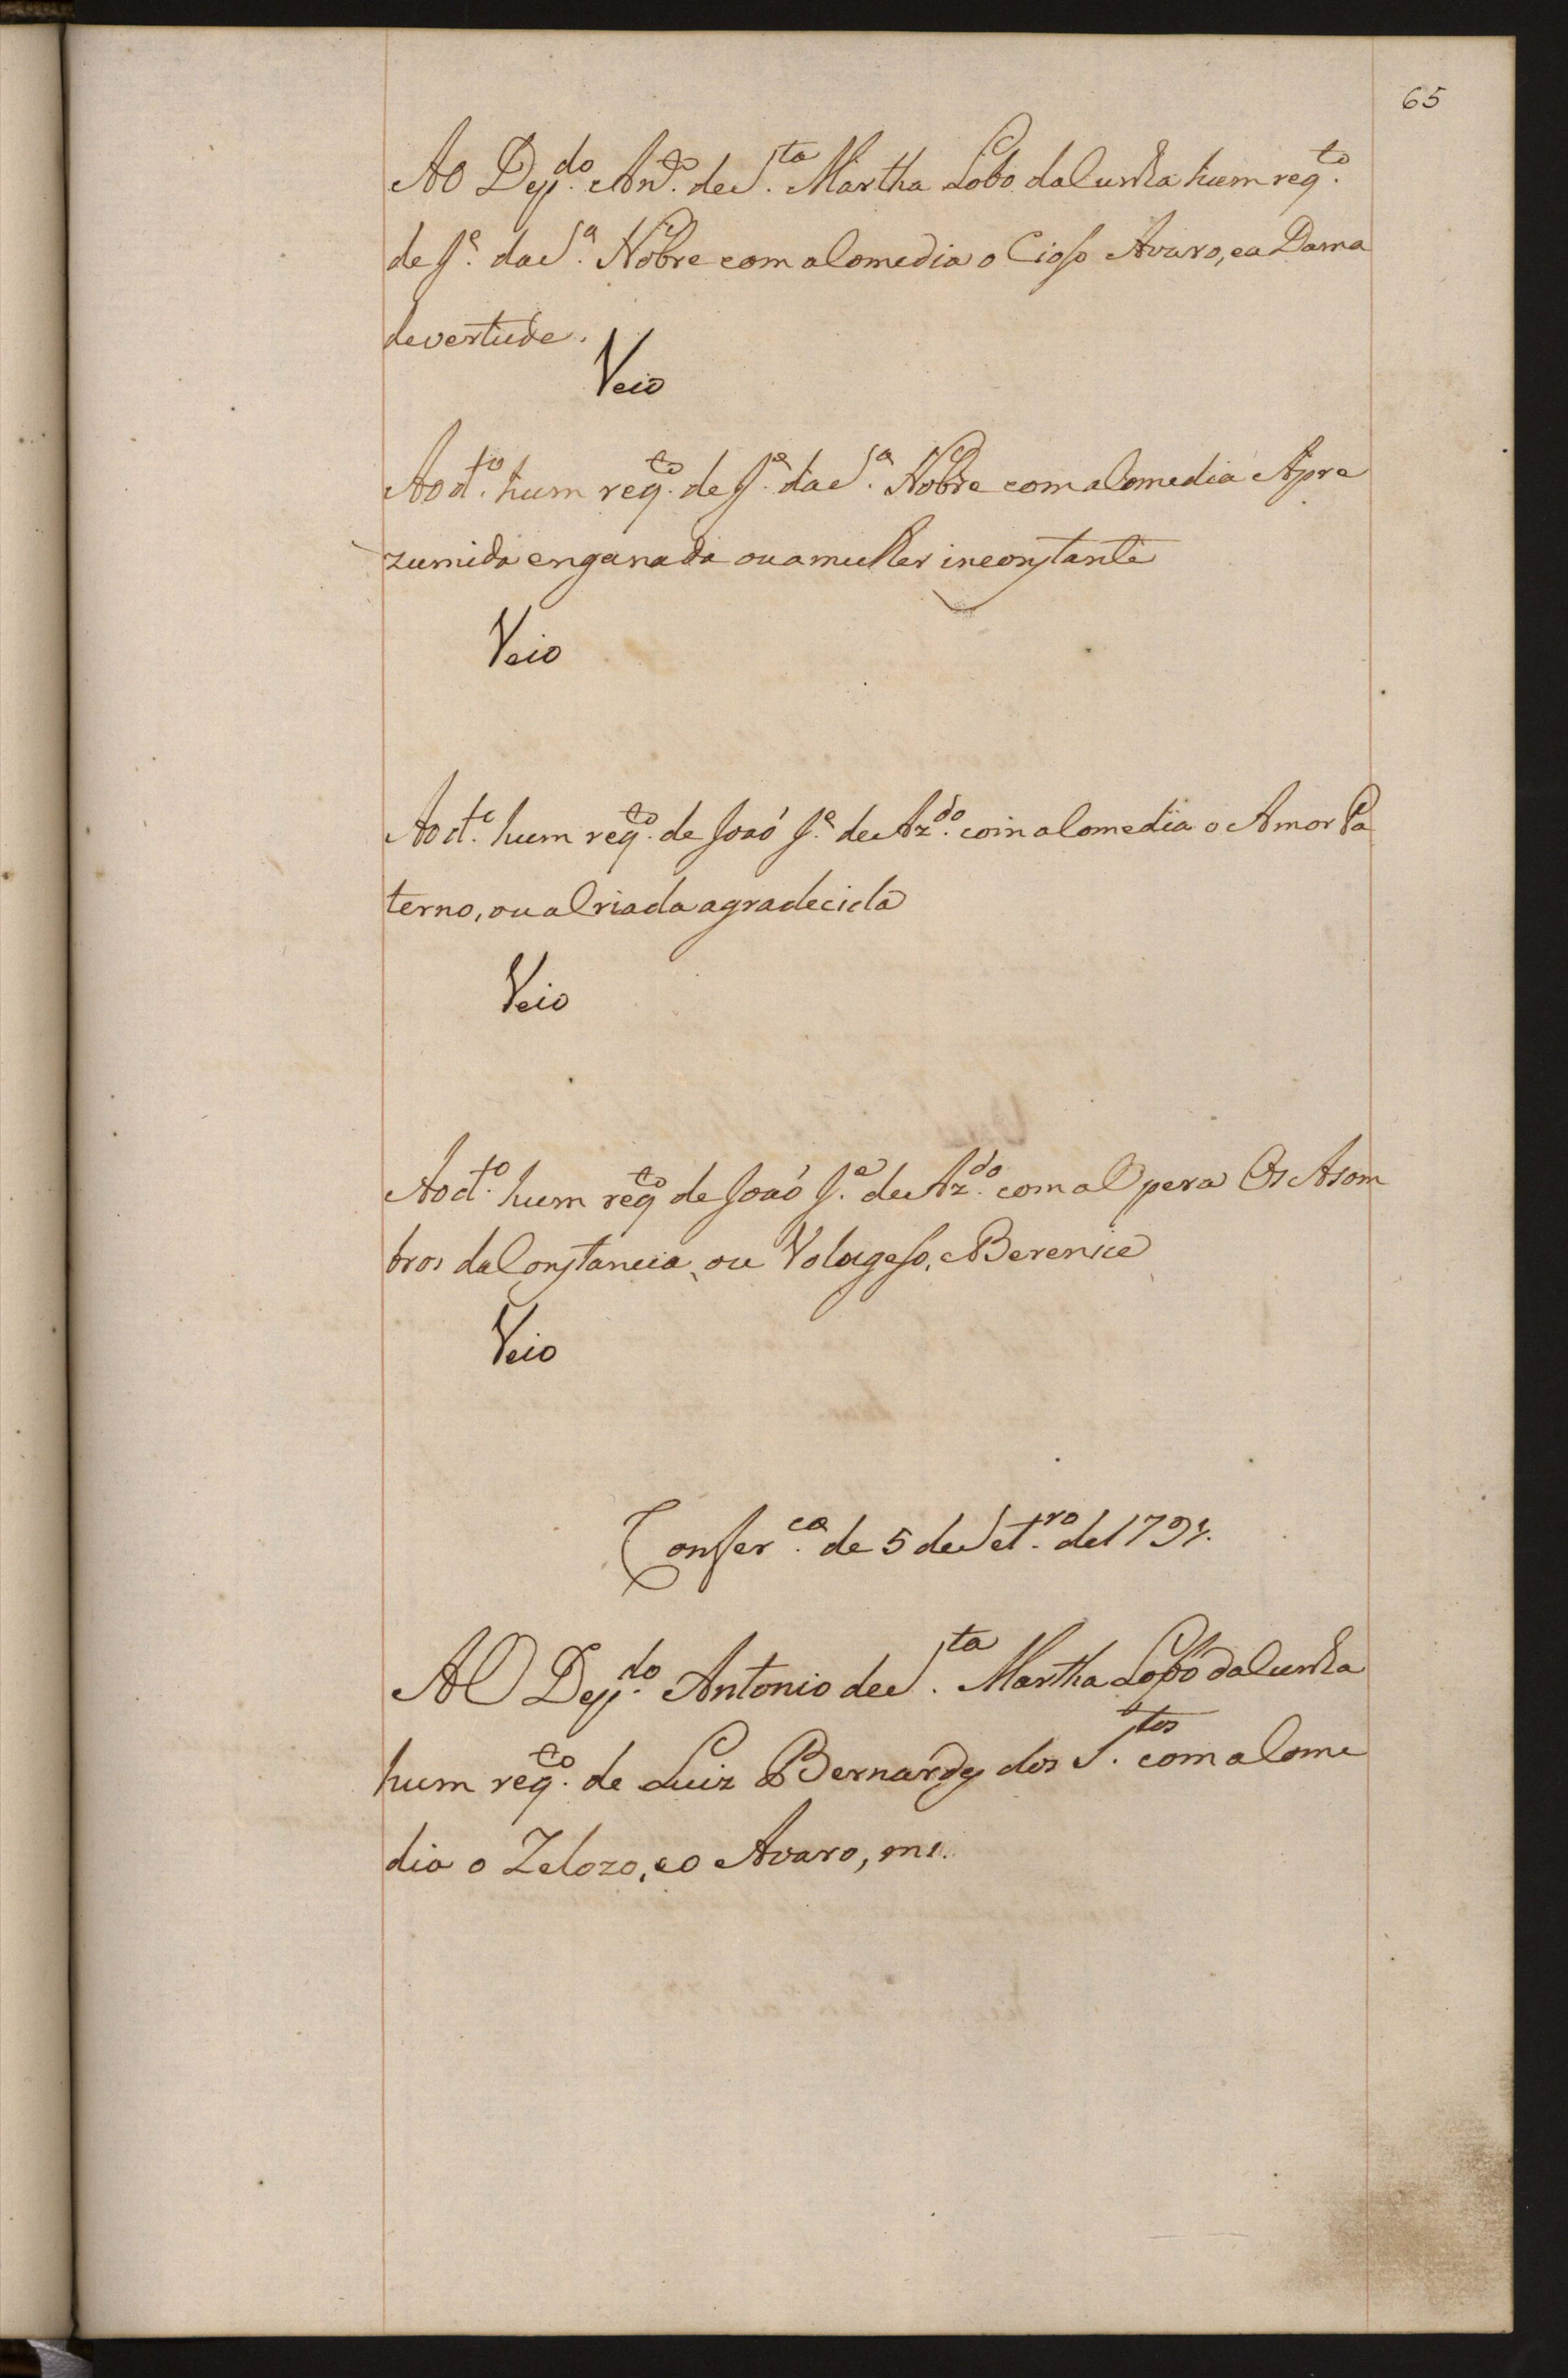 65
Ao Dep.do An.to de S.ta Martha Lobo da Cunha hum req.to
de J.e da S.a Nobre com a Comedia o Cioso Avaro, e a Dama
de vertude.
Veio
Ao d.to hum req.to de J.e da S.a Nobre com a Comedia A pre
zumida enganada ou a mulher inconstante
Veio
Ao d.o hum req.to de Joaó J.e de Az.do com a Comedia o Amor Pa
terno, ou a Criada agradecida
Veio
Ao d.to hum req.to de Joaó J.e de Az.do com a Opera Os Asom
bros da Constancia, ou Vologeso, e Berenice
Veio
Confer.ca de 5 de Set.ro de 1791.
AO Dep.do Antonio de S.ta Martha Lobo da Cunha
hum req.to de Luiz Bernardes dos S.tos com a Come
dia o Zelozo, e o Avaro,